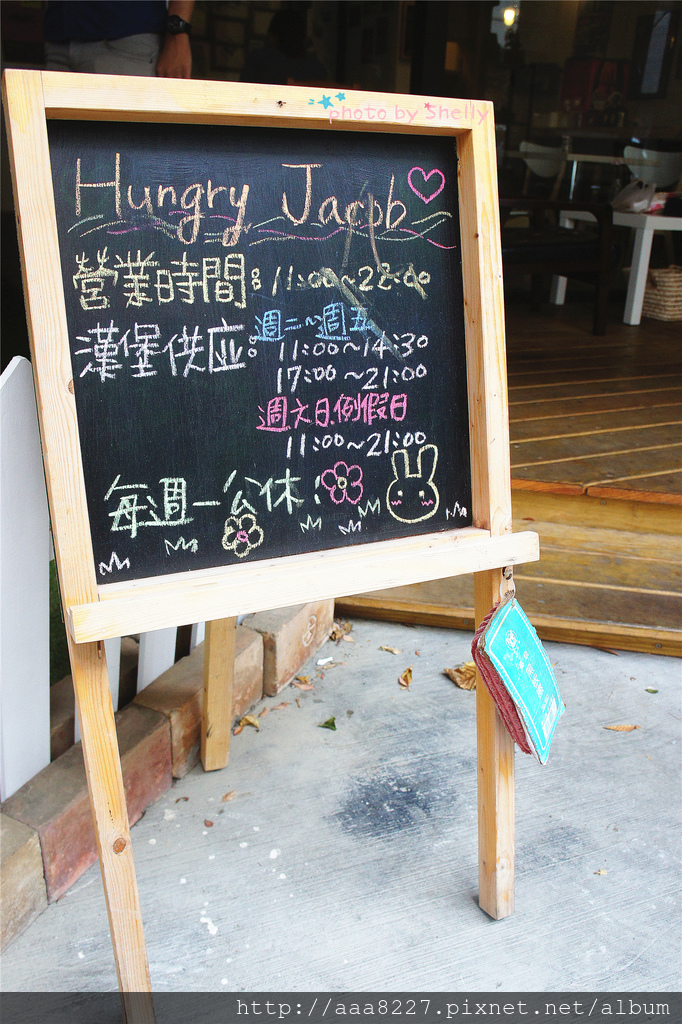 photo by Shelly
Hungry Jacob
營業時間: 11:00~22:00
漢堡供應: 週二~週五
11:00~14:30
17:00~21:00
週六日.例假日
11:00~21:00
每週一公休:
http://aaa8227.pixnet.net/album